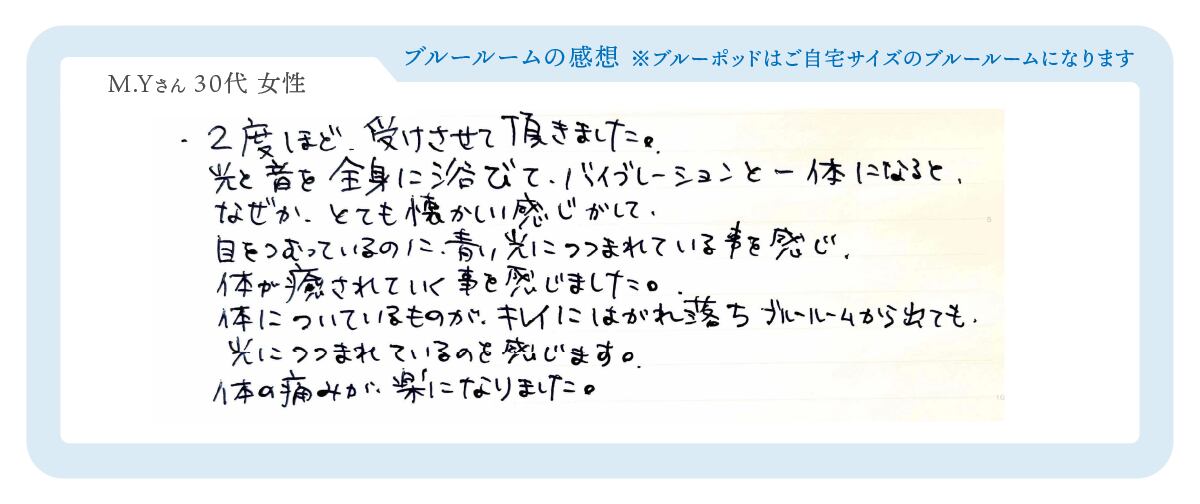 ブルールームの感想 ※ブルーポッドはご自宅サイズのブルールームになります
M.Yさん 30代 女性
・2度ほど、受けさせて頂きました。
光と音を全身に浴びて、バイブレーションと一体になると、
なぜか、とても懐かしい感じがして、
目をつむっているのに、青い光につつまれている事を感じ、
体が癒されていく事を感じました。
体についているものが、キレイにはがれ落ちブルールームから出ても、
光につつまれているのを感じます。
体の痛みが、楽になりました。
5
10